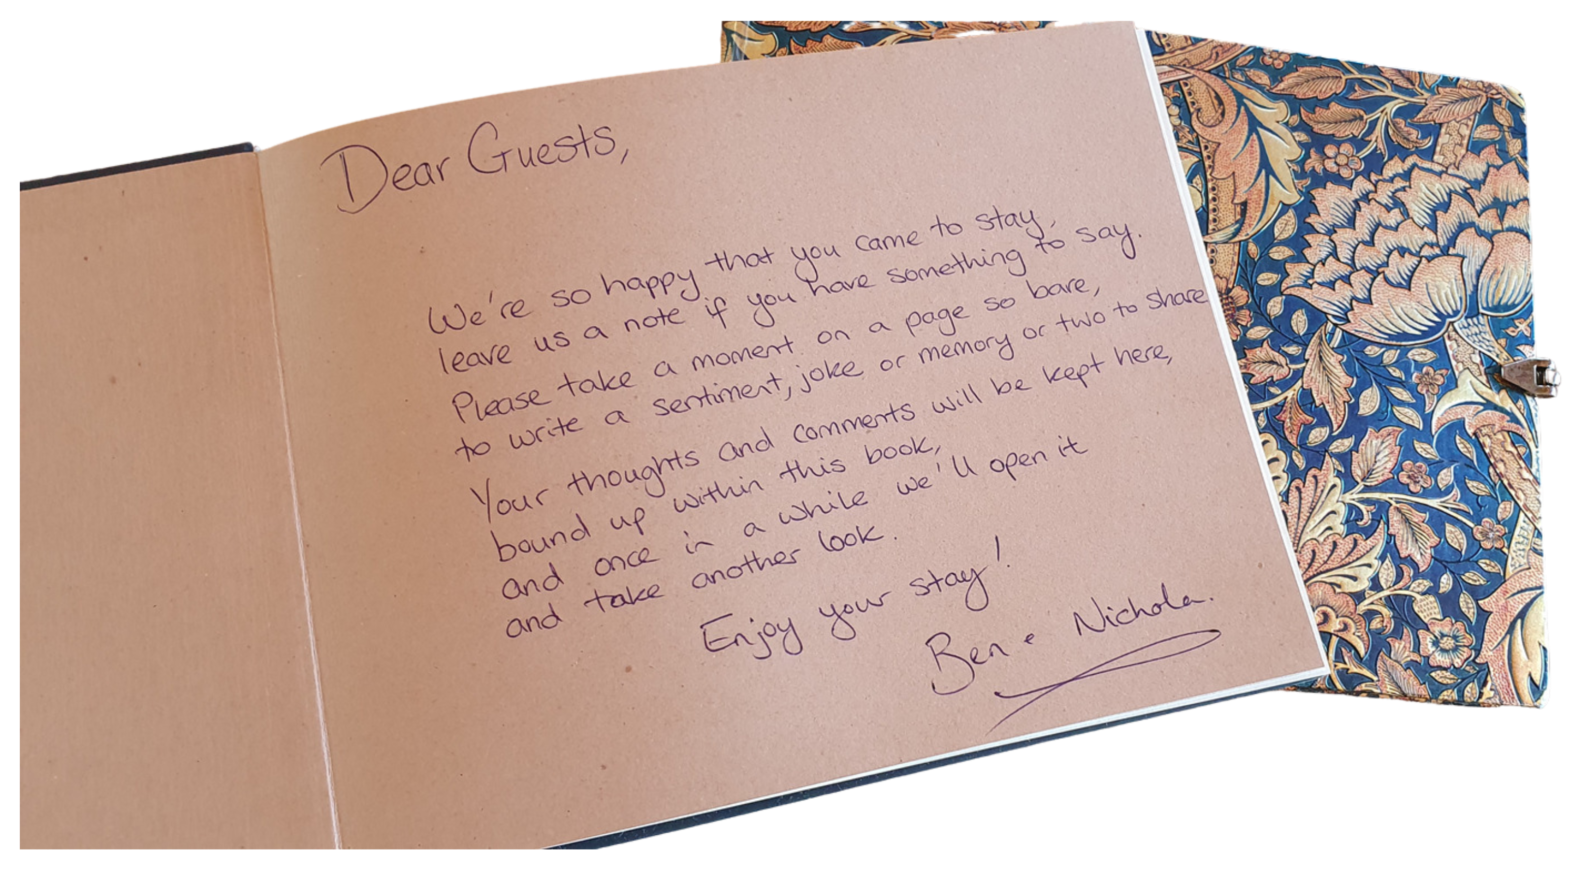 Dear Guests,
We're so happy that you came to stay,
leave us a note if you have something to say.
Please take a moment on a page so bare,
to write a sentiment, joke or memory or two to share
Your thoughts and comments will be kept here,
bound up within this book,
and once in a while we'll open it
and take another look.
Enjoy your stay!
Ben & Nichola.